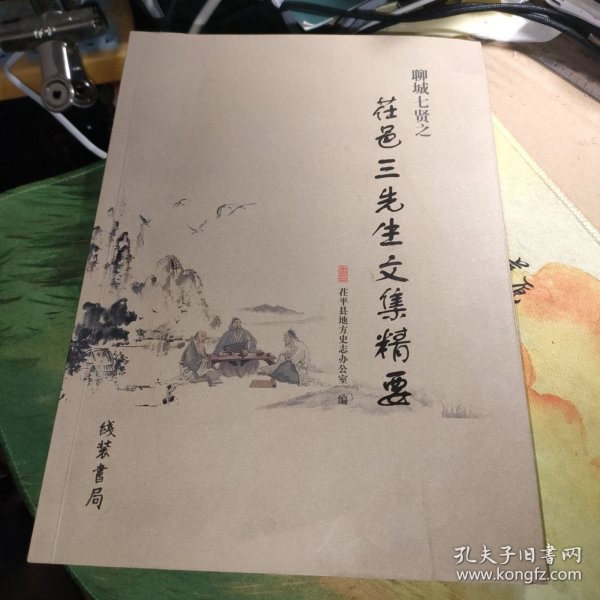 聊城七贤之
茌邑三先生文集精要
茌平县地方史志办公室 编
线装書局
孔夫子旧書网
www.kongfz.com